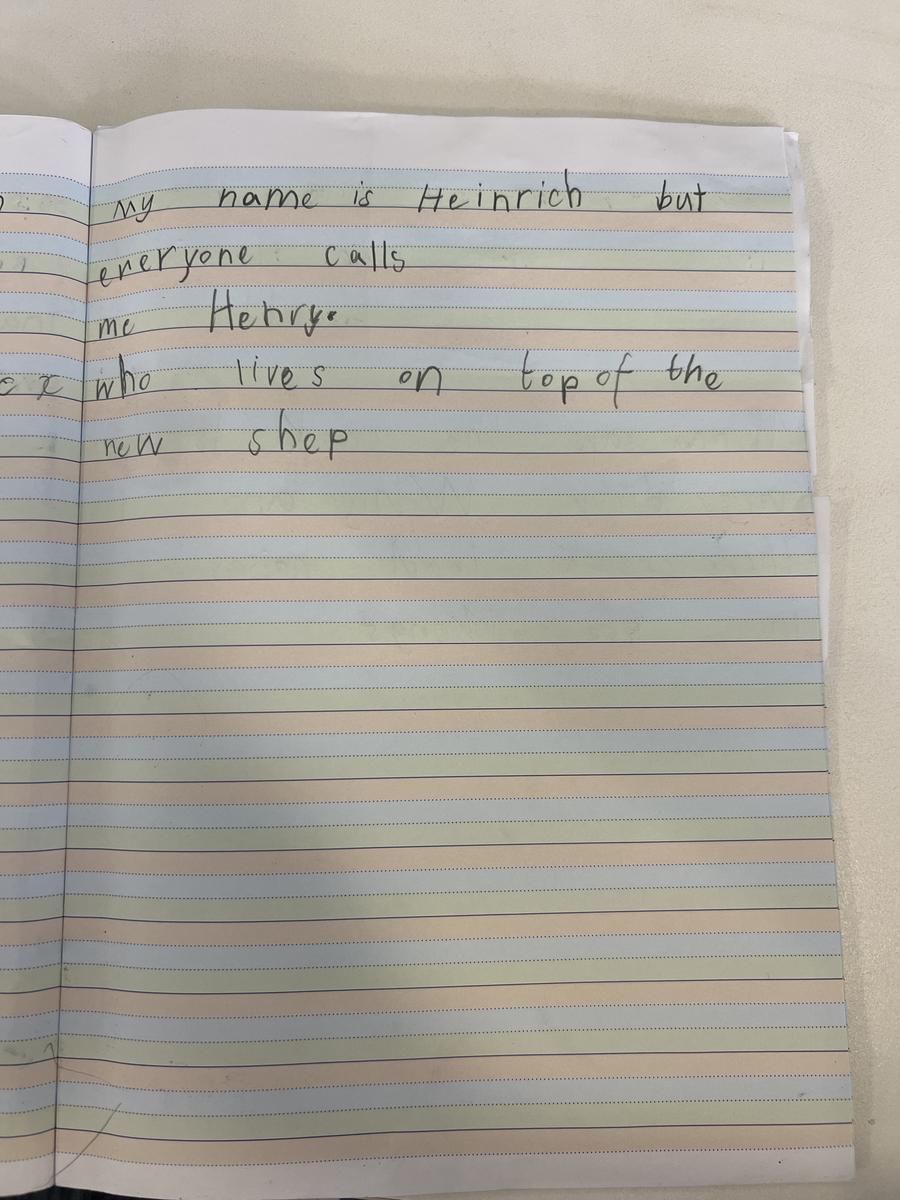 My name is Heinrich but
eneryone calls
me Henry.
who lives on top of the
new shep